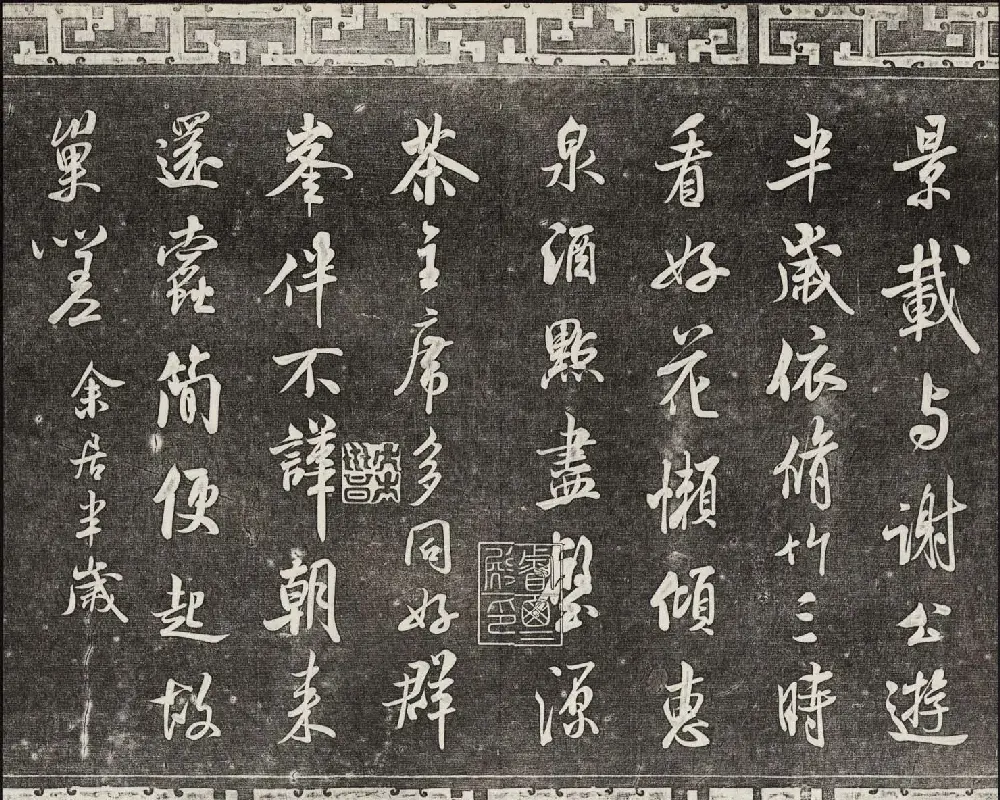 景載与謝公遊
半歲依脩竹三時
看好花懶傾惠
泉酒點盡壑源
茶主席多同好群
峯伴不譁朝来
還蠹簡便起故
巢嗟 余居半歲